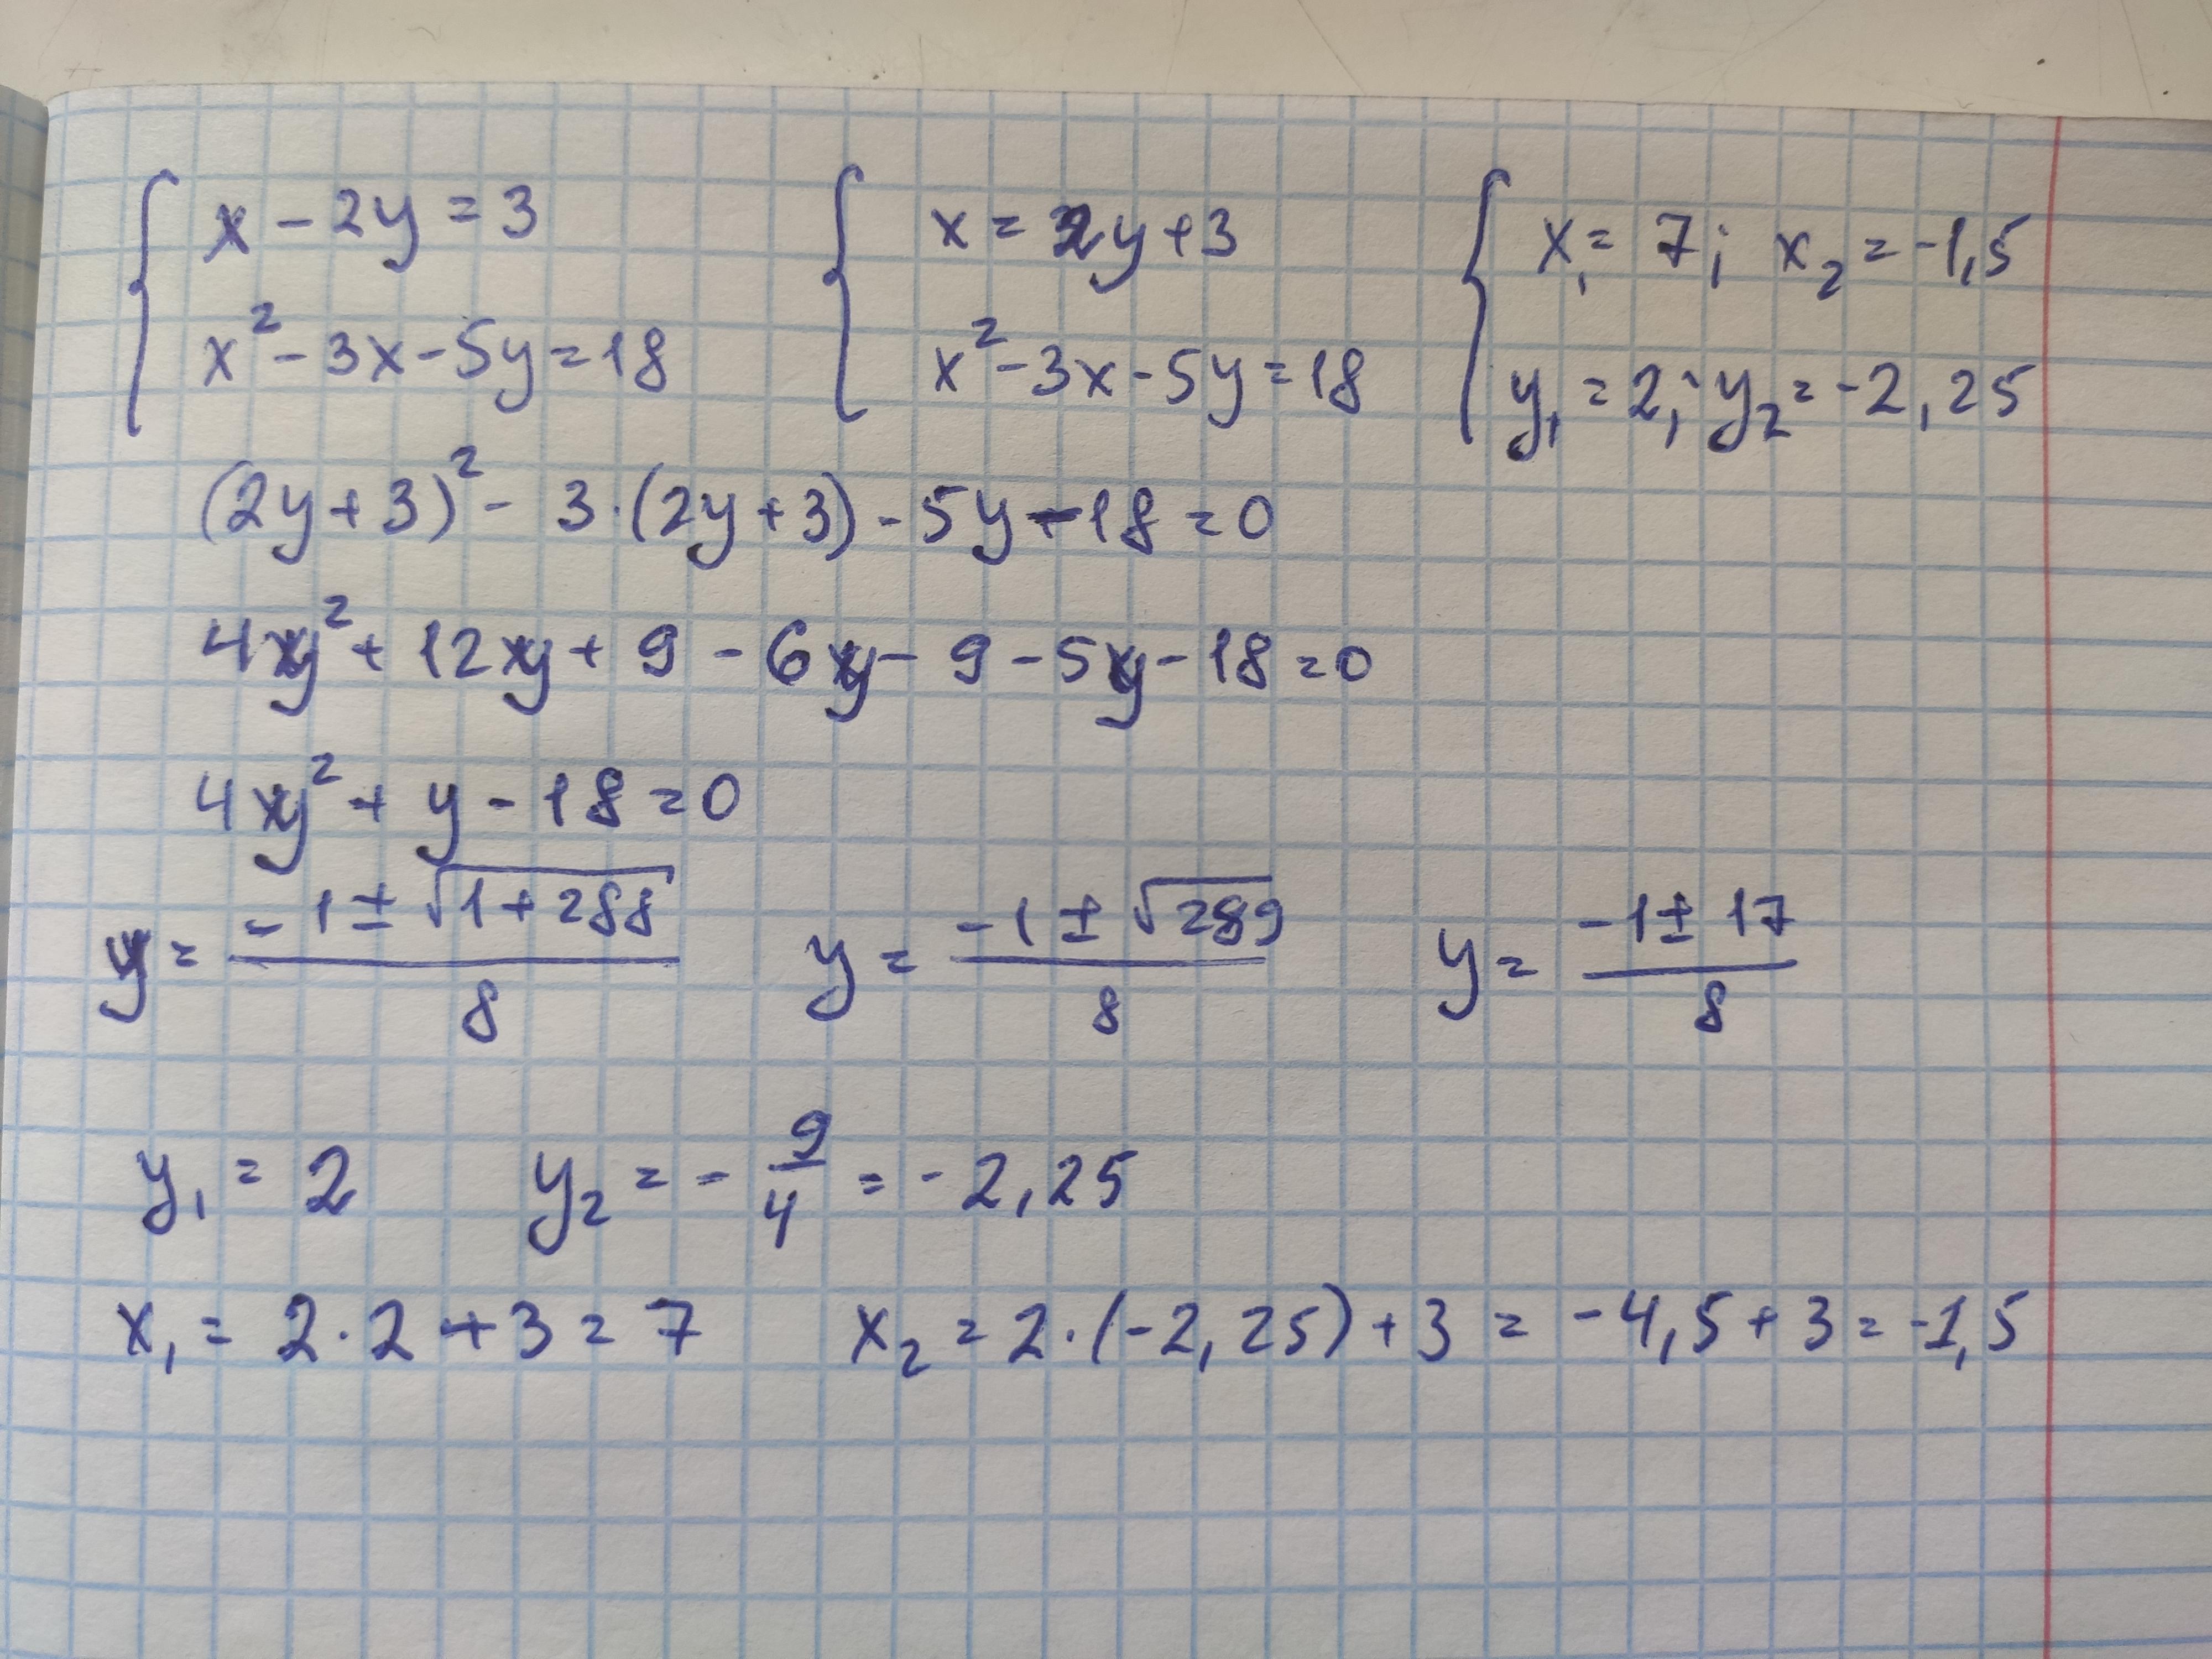 x - 2y = 3   x = 2y + 3   x₁ = 7; x₂ = -1,5
x² - 3x - 5y = 18   x² - 3x - 5y = 18   y₁ = 2; y₂ = -2,25
(2y + 3)² - 3·(2y + 3) - 5y - 18 = 0
4y² + 12y + 9 - 6y - 9 - 5y - 18 = 0
4y² + y - 18 = 0
y = (-1 ± √(1 + 288))/8   y = (-1 ± √289)/8   y = (-1 ± 17)/8
y₁ = 2   y₂ = -9/4 = -2,25
x₁ = 2·2 + 3 = 7   x₂ = 2·(-2,25) + 3 = -4,5 + 3 = -1,5